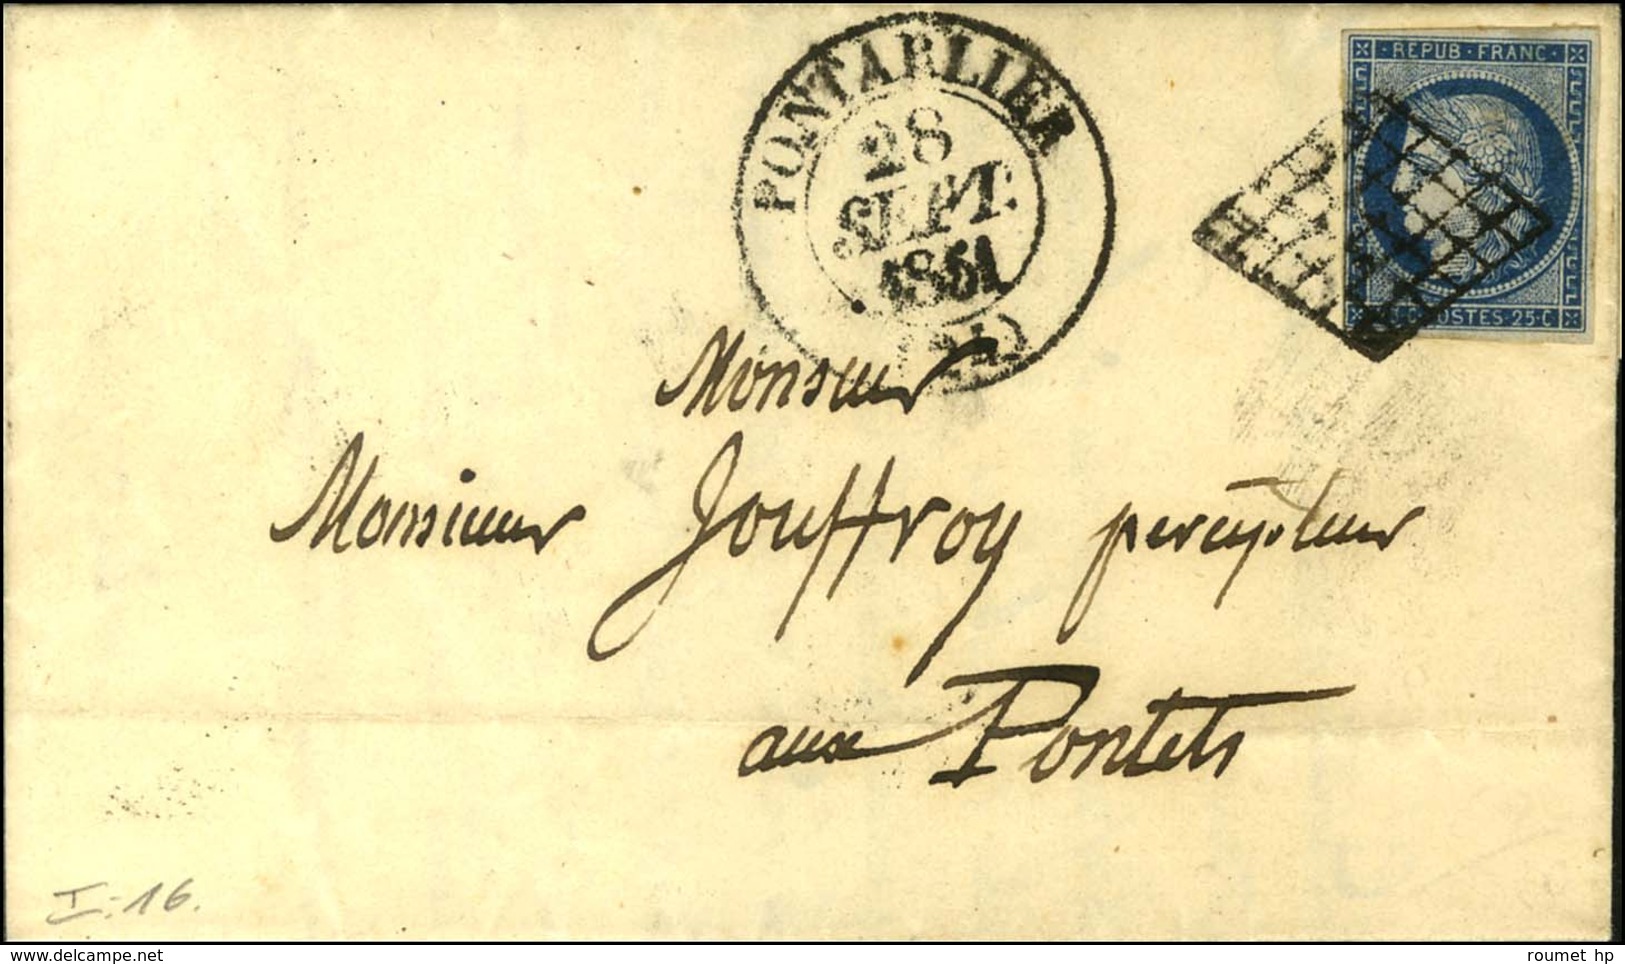 PONTARLIER
28
SEPT.
1851
REPUB·FRANC
POSTES·25·C
Monsieur
Monsieur Jouffroy percepteur
aux Pontets
I.16.
roumet hp